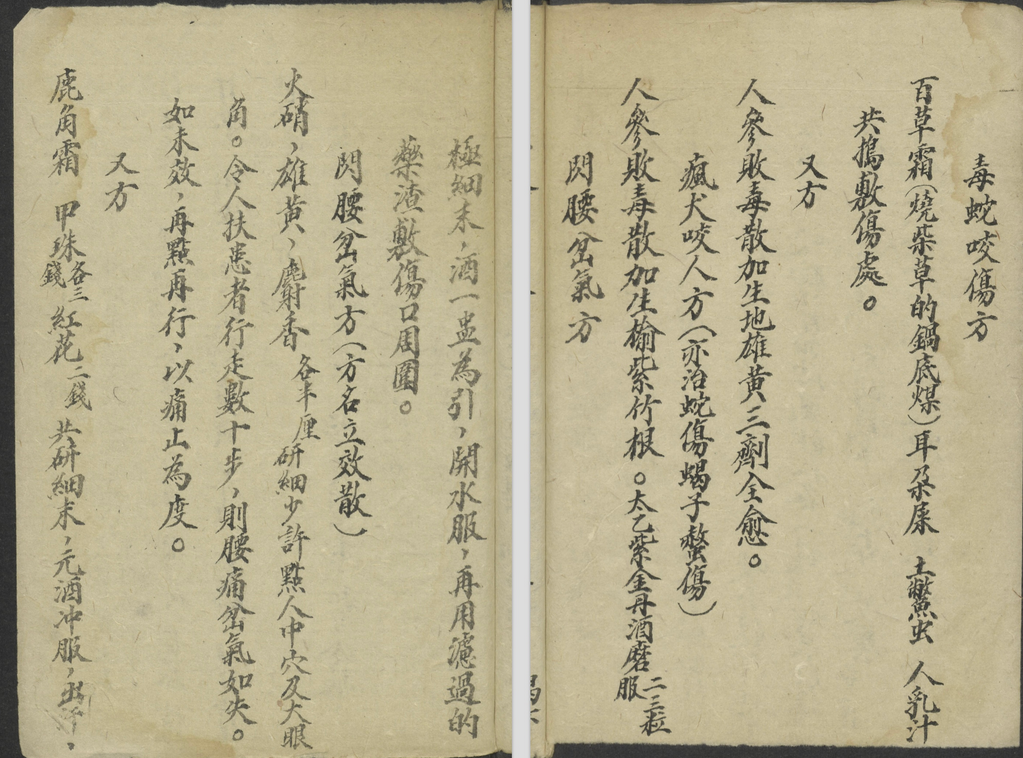 毒蛇咬傷方
百草霜(燒柴草的鍋底煤)耳朶屎　土鱉虫　人乳汁
共搗敷傷處。
又方
人參敗毒散加生地雄黃三劑全愈。
瘋犬咬人方(亦治蛇傷蝎子螫傷)
人參敗毒散加生榆紫竹根。太乙紫金丹酒磨服二三粒
閃腰岔氣方
極細末，酒一盅為引，開水服，再用濾過的
藥渣敷傷口周圍。
閃腰岔氣方(方名立效散)
火硝，雄黃，麝香各半厘研細少許點人中穴及大眼
角。令人扶患者行走數十步，則腰痛岔氣如失。
如未效，再點再行，以痛止為度。
又方
鹿角霜　甲珠各三錢紅花二錢共研細末，元酒冲服，